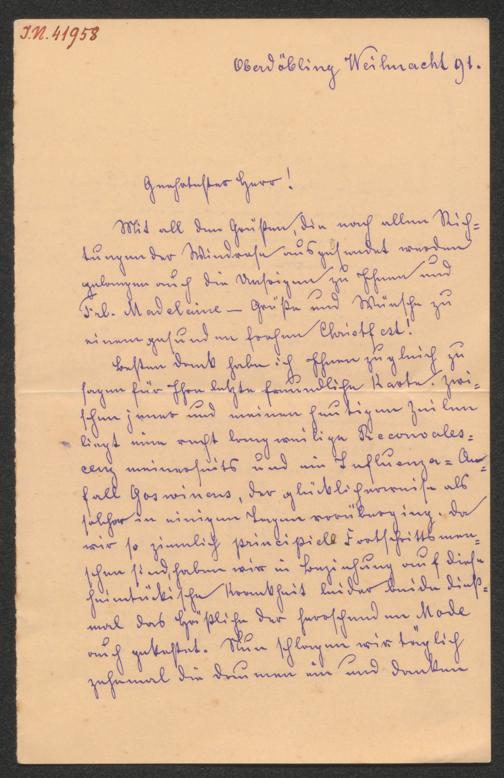 I.N. 41958
Oberdöbling Weihnacht 91.
Geehrtester Herr!
Mit all den Grüßen, die nach allen Rich-
tungen der Windrose ausgesendet werden
gelangen auch die Unsrigen zu Ihnen und
Frl. Madelaine – Grüße und Wünsche zu
einem gesunden frohen Christfest!
Besten Dank habe ich Ihnen zugleich zu
sagen für Ihre letzte freundliche Karte. Zwi-
schen jener und meinen heutigen Zeilen
liegt eine recht langweilige Reconvales-
cenz meinerseits und ein Influenza-An-
fall Goswinens, der glücklicherweise als
solcher in einigen Tagen vorüberging. Da
wir so ziemlich principiell Fortschrittsmen-
schen sind, haben wir in Beziehung auf diese
heimtückische Krankheit leider beide dieß-
mal das Häßliche der herrschenden Mode
auch gekostet. Nun schlagen wir täglich
zehnmal die Daumen ein und danken